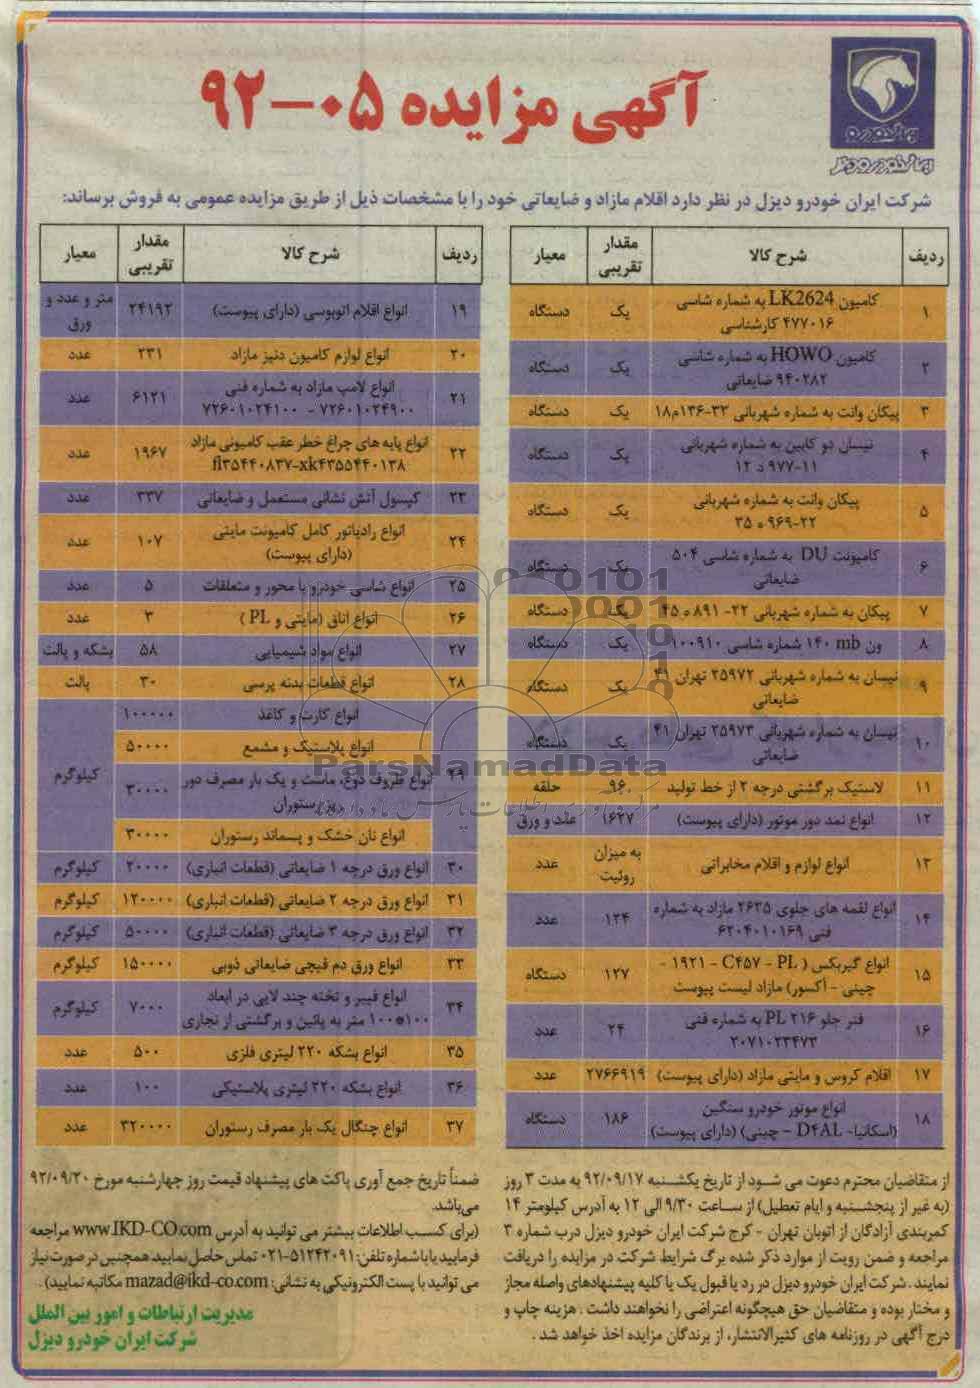 آگهی مزایده ۰۵-۹۲
ایران خودرو
ایران خودرو دیزل
شرکت ایران خودرو دیزل در نظر دارد اقلام مازاد و ضایعاتی خود را با مشخصات ذیل از طریق مزایده عمومی به فروش برساند:
ردیف شرح کالا مقدار تقریبی معیار
۱ کامیون LK2624 به شماره شاسی ۴۷۷۰۱۶ کارشناسی یک دستگاه
۲ کامیون HOWO به شماره شاسی ۹۴۰۲۸۲ ضایعاتی یک دستگاه
۳ پیکان وانت به شماره شهربانی ۳۳-۱۳۶م۱۸ یک دستگاه
۴ نیسان دو کابین به شماره شهربانی ۱۱-۹۷۷ د ۱۲ یک دستگاه
۵ پیکان وانت به شماره شهربانی ۲۲-۹۶۹ ه ۳۵ یک دستگاه
۶ کامیونت DU به شماره شاسی ۵۰۴ ضایعاتی یک دستگاه
۷ پیکان به شماره شهربانی ۲۲- ۸۹۱ ه ۴۵ یک دستگاه
۸ ون ۱۴۰ mb شماره شاسی ۱۰۰۹۱۰ یک دستگاه
۹ نیسان به شماره شهربانی ۲۵۹۷۲ تهران ۴۱ ضایعاتی یک دستگاه
۱۰ نیسان به شماره شهربانی ۲۵۹۷۳ تهران ۴۱ ضایعاتی یک دستگاه
۱۱ لاستیک برگشتی درجه ۲ از خط تولید ۹۶ حلقه
۱۲ انواع نمد دور موتور (دارای پیوست) ۱۶۲۷ عدد و ورق
۱۳ انواع لوازم و اقلام مخابراتی به میزان روئیت عدد
۱۴ انواع لقمه های جلوی ۲۶۲۵ مازاد به شماره فنی ۶۲۰۴۰۱۰۱۶۹ ۱۲۴ عدد
۱۵ انواع گیربکس ( PL - C۴۵۷ - ۱۹۲۱ - چینی - آکسور) مازاد لیست پیوست ۱۲۷ دستگاه
۱۶ فنر جلو ۲۱۶ PL به شماره فنی ۲۰۷۱۰۲۳۴۷۳ ۲۴ عدد
۱۷ اقلام کروس و مایتی مازاد (دارای پیوست) ۲۷۶۶۹۱۹ عدد
۱۸ انواع موتور خودرو سنگین (اسکانیا- D۴AL - چینی) (دارای پیوست) ۱۸۶ دستگاه
ردیف شرح کالا مقدار تقریبی معیار
۱۹ انواع اقلام اتوبوسی (دارای پیوست) ۲۴۱۹۲ متر و عدد و ورق
۲۰ انواع لوازم کامیون دنیز مازاد ۲۳۱ عدد
۲۱ انواع لامپ مازاد به شماره فنی ۷۲۶۰۱۰۲۴۹۰۰ - ۷۲۶۰۱۰۲۴۱۰۰ ۶۱۲۱ عدد
۲۲ انواع پایه های چراغ خطر عقب کامیونی مازاد fl۳۵۴۴۰۸۳۷-xk۴۳۵۵۴۴۰۱۳۸ ۱۹۶۷ عدد
۲۳ کپسول آتش نشانی مستعمل و ضایعاتی ۳۳۷ عدد
۲۴ انواع رادیاتور کامل کامیونت مایتی (دارای پیوست) ۱۰۷ عدد
۲۵ انواع شاسی خودرو با محور و متعلقات ۵ عدد
۲۶ انواع اتاق (مایتی و PL ) ۳ عدد
۲۷ انواع مواد شیمیایی ۵۸ بشکه و پالت
۲۸ انواع قطعات بدنه پرسی ۳۰ پالت
۲۹ انواع کارتن و کاغذ ۱۰۰۰۰۰ کیلوگرم
انواع پلاستیک و مشمع ۵۰۰۰۰
انواع ظروف دوغ، ماست و یک بار مصرف دور ریز رستوران ۳۰۰۰۰
انواع نان خشک و پسماند رستوران ۳۰۰۰۰
۳۰ انواع ورق درجه ۱ ضایعاتی (قطعات انباری) ۲۰۰۰۰ کیلوگرم
۳۱ انواع ورق درجه ۲ ضایعاتی (قطعات انباری) ۱۲۰۰۰۰ کیلوگرم
۳۲ انواع ورق درجه ۳ ضایعاتی (قطعات انباری) ۵۰۰۰۰ کیلوگرم
۳۳ انواع ورق دم قیچی ضایعاتی ذوبی ۱۵۰۰۰۰ کیلوگرم
۳۴ انواع فیبر و تخته چند لایی در ابعاد ۱۰۰*۱۰۰ متر به پائین و برگشتی از نجاری ۷۰۰۰ کیلوگرم
۳۵ انواع بشکه ۲۲۰ لیتری فلزی ۵۰۰ عدد
۳۶ انواع بشکه ۲۲۰ لیتری پلاستیکی ۱۰۰ عدد
۳۷ انواع چنگال یک بار مصرف رستوران ۳۲۰۰۰۰ عدد
ParsNamadData
از متقاضیان محترم دعوت می شود از تاریخ یکشنبه ۹۲/۰۹/۱۷ به مدت ۳ روز
(به غیر از پنجشنبه و ایام تعطیل) از ساعت ۹/۳۰ الی ۱۲ به آدرس کیلومتر ۱۴
کمربندی آزادگان از اتوبان تهران - کرج شرکت ایران خودرو دیزل درب شماره ۳
مراجعه و ضمن رویت از موارد ذکر شده برگ شرایط شرکت در مزایده را دریافت
نمایند . شرکت ایران خودرو دیزل در رد یا قبول یک یا کلیه پیشنهادهای واصله مجاز
و مختار بوده و متقاضیان حق هیچگونه اعتراضی را نخواهند داشت . هزینه چاپ و
درج آگهی در روزنامه های کثیرالانتشار، از برندگان مزایده اخذ خواهد شد .
ضمناً تاریخ جمع آوری پاکت های پیشنهاد قیمت روز چهارشنبه مورخ ۹۲/۰۹/۲۰
می‌باشد.
(برای کسب اطلاعات بیشتر می توانید به آدرس www.IKD-CO.com مراجعه
فرمایید یا با شماره تلفن: ۵۱۲۴۲۰۹۱-۰۲۱ تماس حاصل نمایید همچنین در صورت نیاز
می توانید با پست الکترونیکی به نشانی: mazad@ikd-co.com مکاتبه نمایید) .
مدیریت ارتباطات و امور بین الملل
شرکت ایران خودرو دیزل